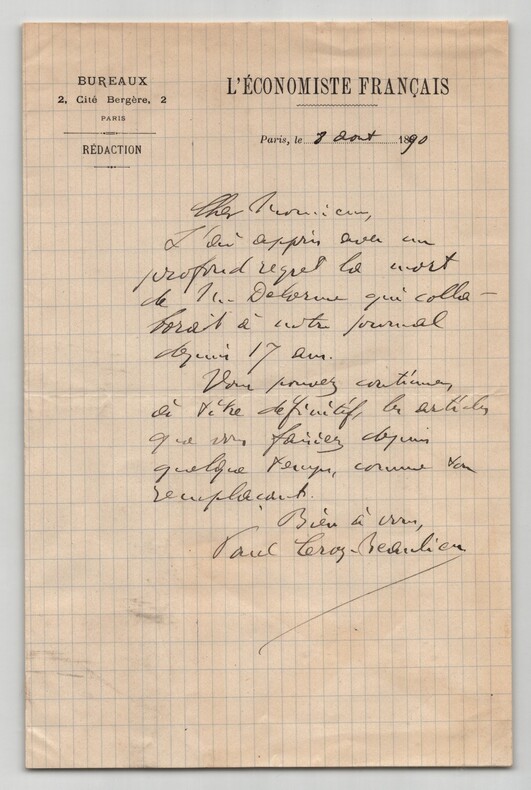 BUREAUX
2, Cité Bergère, 2
PARIS
RÉDACTION
L'ÉCONOMISTE FRANÇAIS
Paris, le 8 août 1890
Cher Monsieur,
J'ai appris avec un
profond regret la mort
de M. Delorme qui colla-
borait à notre journal
depuis 17 ans.
Vous pouvez continuer,
à titre définitif, les articles
que vous faisiez depuis
quelque temps, comme son
remplaçant.
Bien à vous,
Paul Leroy-Beaulieu